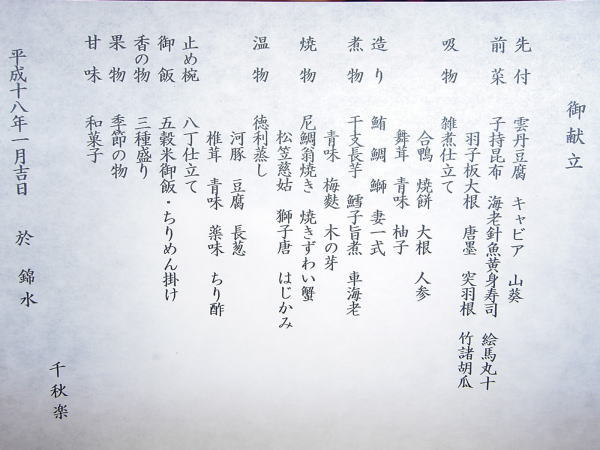 御献立
先付　雲丹豆腐　キャビア　山葵
前菜　子持昆布　海老針魚黄身寿司　絵馬丸十
羽子板大根　唐墨　突羽根　竹諸胡瓜
吸物　雑煮仕立て
合鴨　焼餅　大根　人参
舞茸　青味　柚子
造り　鮪　鯛　鰤　妻一式
煮物　干支長芋　鱈子旨煮　車海老
青味　梅麩　木の芽
焼物　尼鯛翁焼き　焼きずわい蟹
松笠慈姑　獅子唐　はじかみ
温物　徳利蒸し
河豚　豆腐　長葱
椎茸　青味　薬味　ちり酢
止め椀　八丁仕立て
御飯　五穀米御飯・ちりめん掛け
香の物　三種盛り
果物　季節の物
甘味　和菓子
平成十八年一月吉日　於　錦水
千秋楽